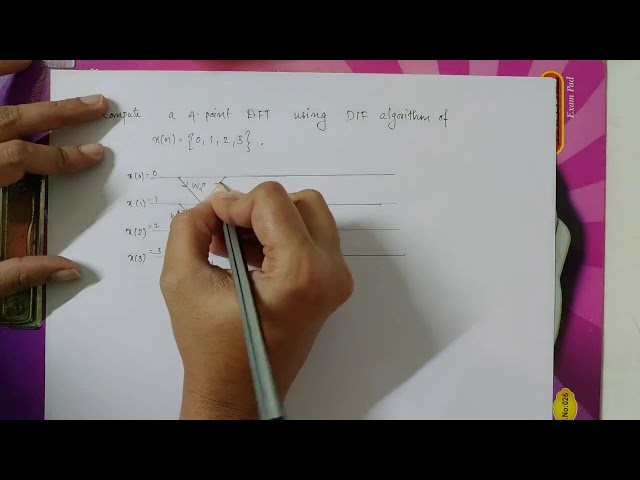 Compute a 4-point DFT using DIF algorithm of
x(n) = {0, 1, 2, 3}.
x(0) = 0
W₄⁰
x(1) = 1
x(2) = 2
x(3) = 3
Exam Pad
No: 026